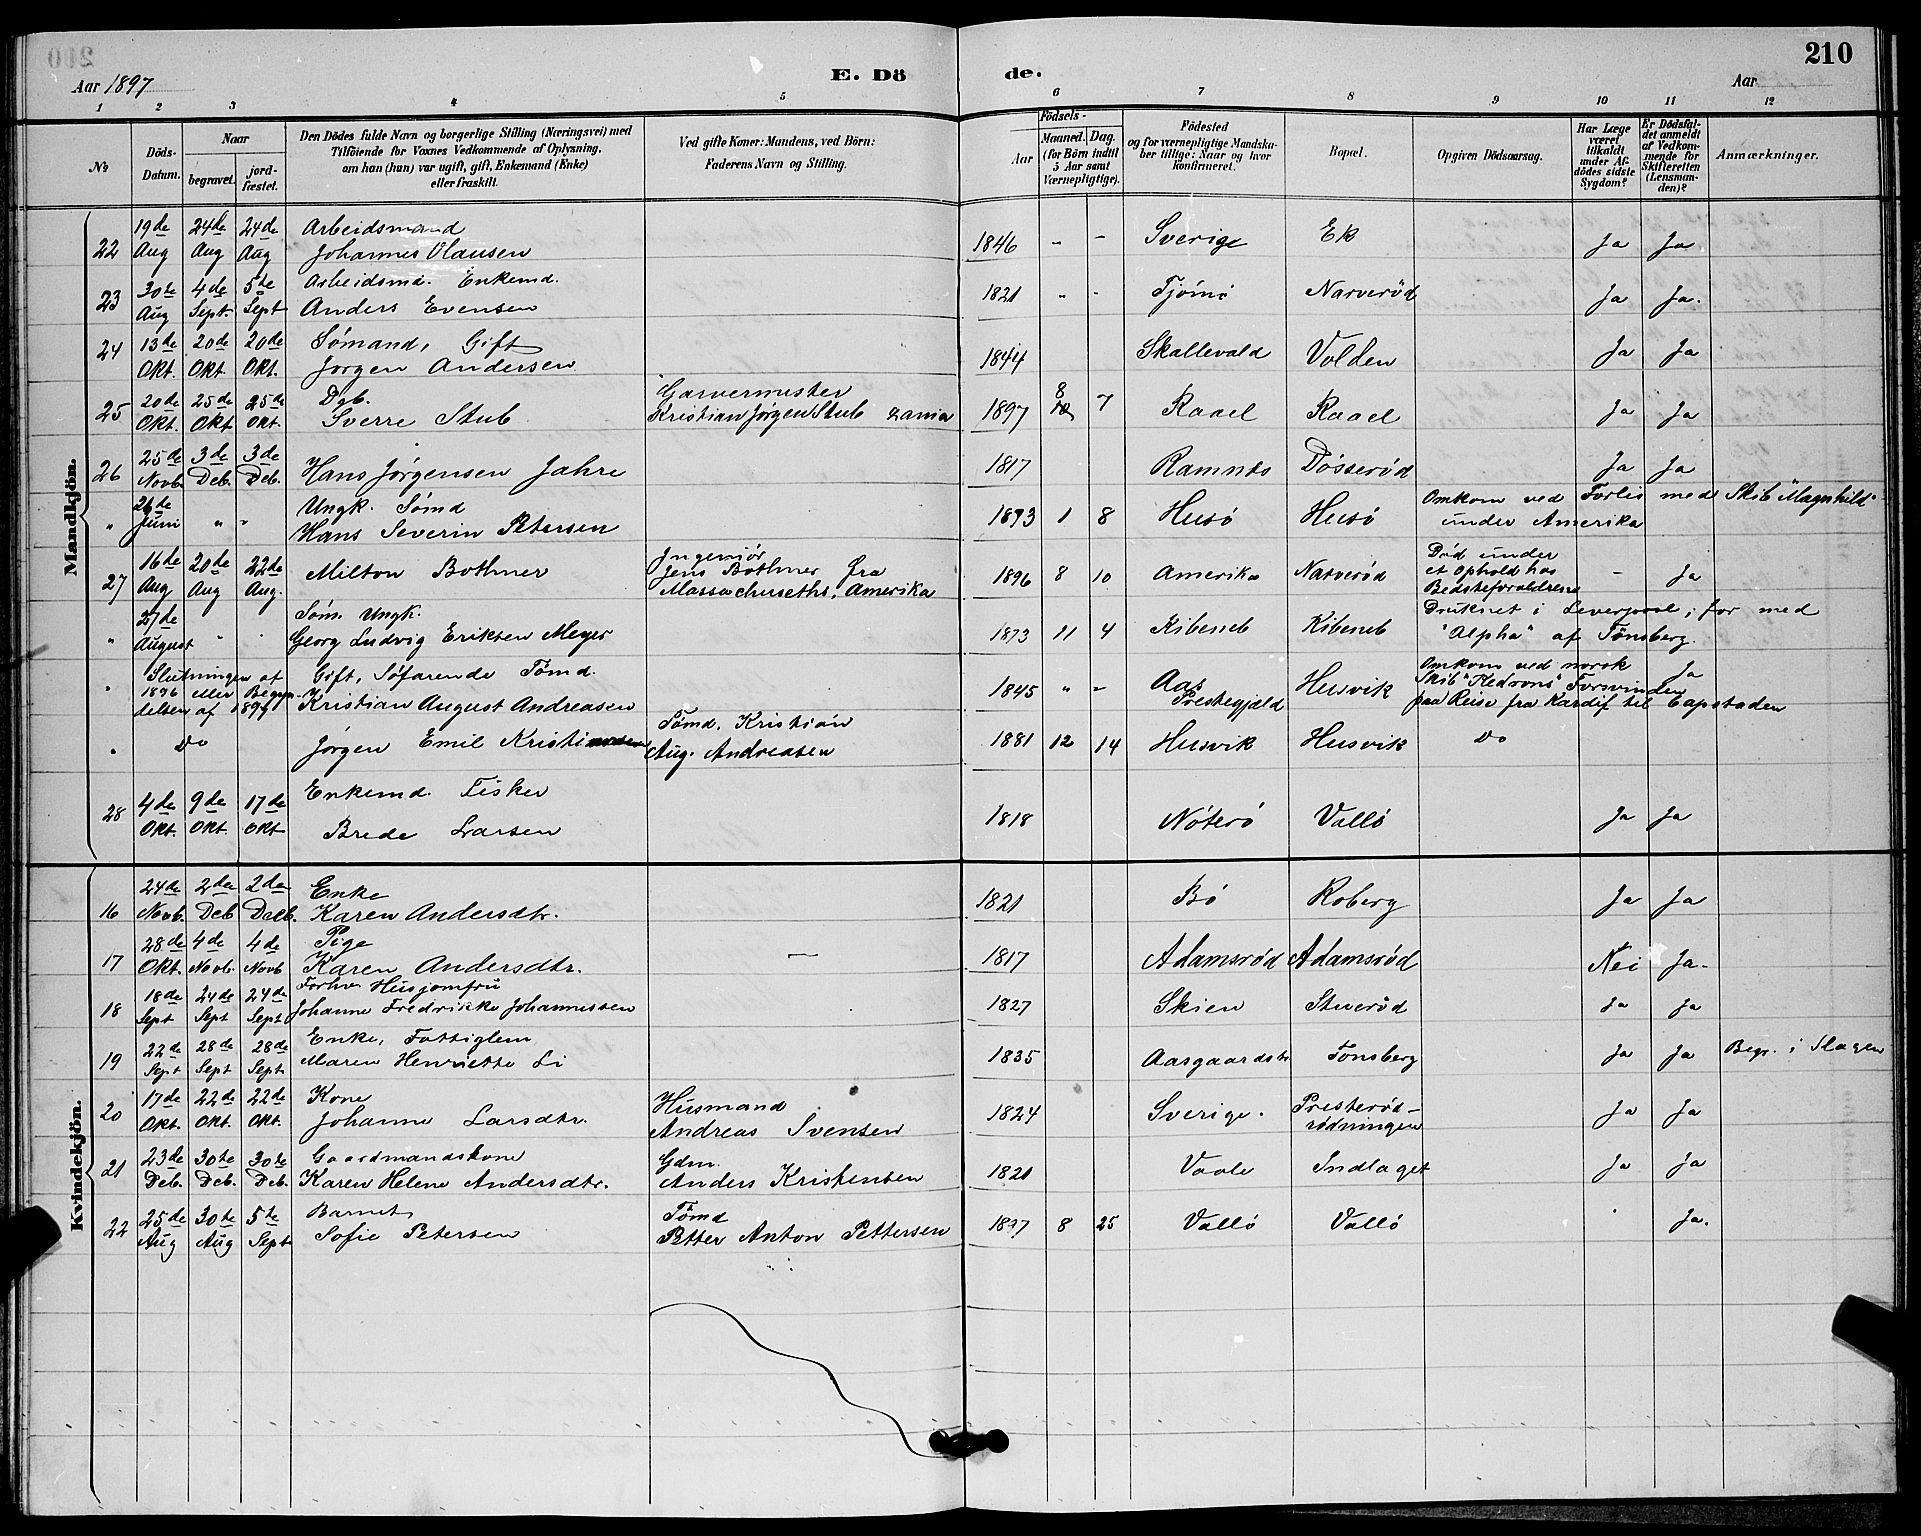 210
Aar 1897
E. Dö
de.
Aar
1 2 3 4 5 6 7 8 9 10 11 12
No
Döds-Datum.
Naar
begravet.
jord-fæstet.
Den Dödes fulde Navn og borgerlige Stilling (Næringsvei) med
Tilföiende for Voxnes Vedkommende af Oplysning,
om han (hun) var ugift, gift, Enkemand (Enke)
eller fraskilt.
Ved gifte Koner: Mandens, ved Börn:
Faderens Navn og Stilling.
Födsels-
Aar
Maaned. Dag.
(for Börn indtil
5 Aar samt
Værnepligtige).
Födested
og for værnepligtige Mandska-
ber tillige: Naar og hvor
konfirmeret.
Bopæl.
Opgiven Dödsaarsag.
Har Læge
været
tilkaldt
under Af-
dödes sidste
Sygdom?
Er Dödsfal-
det anmeldt
af Vedkom-
mende for
Skifteretten
(Lensman-
den)?
Anmærkninger.
Mandkjön.
22 19de Aug 24de Aug 24de Aug Arbeidsmand Johannes Olausen 1846 " - Sverige Ek Ja Ja
23 30te Aug 4de Sept. 5te Sept Arbeidsmd. Enkemd. Anders Evensen 1821 " - Tjömö Narveröd Ja Ja.
24 13de Okt. 20de Okt. 20de Okt. Sömand, Gift Jørgen Andersen 1844 Skallevald Volden Ja Ja
25 20de Okt. 25de Okt 25de Okt. Dgb. Sverre Stub Garvermester Kristian Jørgen Stub 1897 8 7 Raael Raael Ja Ja
26 25de Novb 3de Deb. 3de Deb. Hans Jørgensen Jahre 1817 Ramnes Dösseröd Ja Ja
" 26de Juni " " Ungk. Sömd Hans Severin Petersen 1873 1 8 Husö Husö Omkom ved Forlis med Skib "Magnhild" under Amerika
27 16de Aug 20de Aug 22de Aug. Milton Bothner Ingeniör Jens Bothner fra Massachuseths, Amerika 1896 8 10 Amerika Narveröd Död under et Ophold hos Bedsteforældrene - Ja
" 27de August " " Söm. Ungk. Georg Ludvig Eriksen Meyer 1873 11 4 Kibeneb Kibeneb Druknet i Leverpool; for med "Alpha" af Tönsberg.
" Slutningen af 1896 eller Begyndelsen af 1897 Gift, Söfarende Tömd. Kristian August Andreasen 1845 " - Aas Prestegjæld Husvik Omkom ved norsk Skib "Kedrons" Forsvinden paa Reise fra Kardif til Capstaden Ja
" Do Jørgen Emil Kristiansen Tömd. Kristian Aug. Andreasen 1881 12 14 Husvik Husvik Do
28 4de Okt. 9de Okt. 17de Okt Enkemd. Fisker Brede Larsen 1818 Nöterö Vallö Ja Ja
Kvindekjön.
16 24de Novb. 2den Deb 2den Deeb. Enke Karen Andersdtr. 1821 Bö Roberg Ja Ja
17 28de Okt. 4de Novb. 4de Novb Pige Karen Andersdtr. — 1817 Adamsröd Adamsröd Nei Ja.
18 18de Sept 24de Sept 24de Sept Forhv. Husjomfru Johanne Fredrikke Johannessen 1827 Skien Stueröd Ja Ja
19 22de Sept 28de Sept 28de Sept. Enke, Fattiglem Maren Henriette Li 1835 Aasgaardstr Tönsberg Ja Ja Begr. i Slagen
20 17de Okt. 22de Okt. 22de Okt. Kone Johanne Larsdtr. Husmand Andreas Svensen 1824 Sverige. Presteröd-rödningen Ja Ja
21 23de Deb. 30te Deb. 30te Deb. Gaardmandskone Karen Helene Andersdtr. Gdm. Anders Kristensen 1821 Vaale Indlaget Ja Ja
22 25de Aug 30te Aug 5te Sept Barnet Sofie Petersen Tömd Petter Anton Pettersen 1897 8 25 Vallö Vallö Ja.